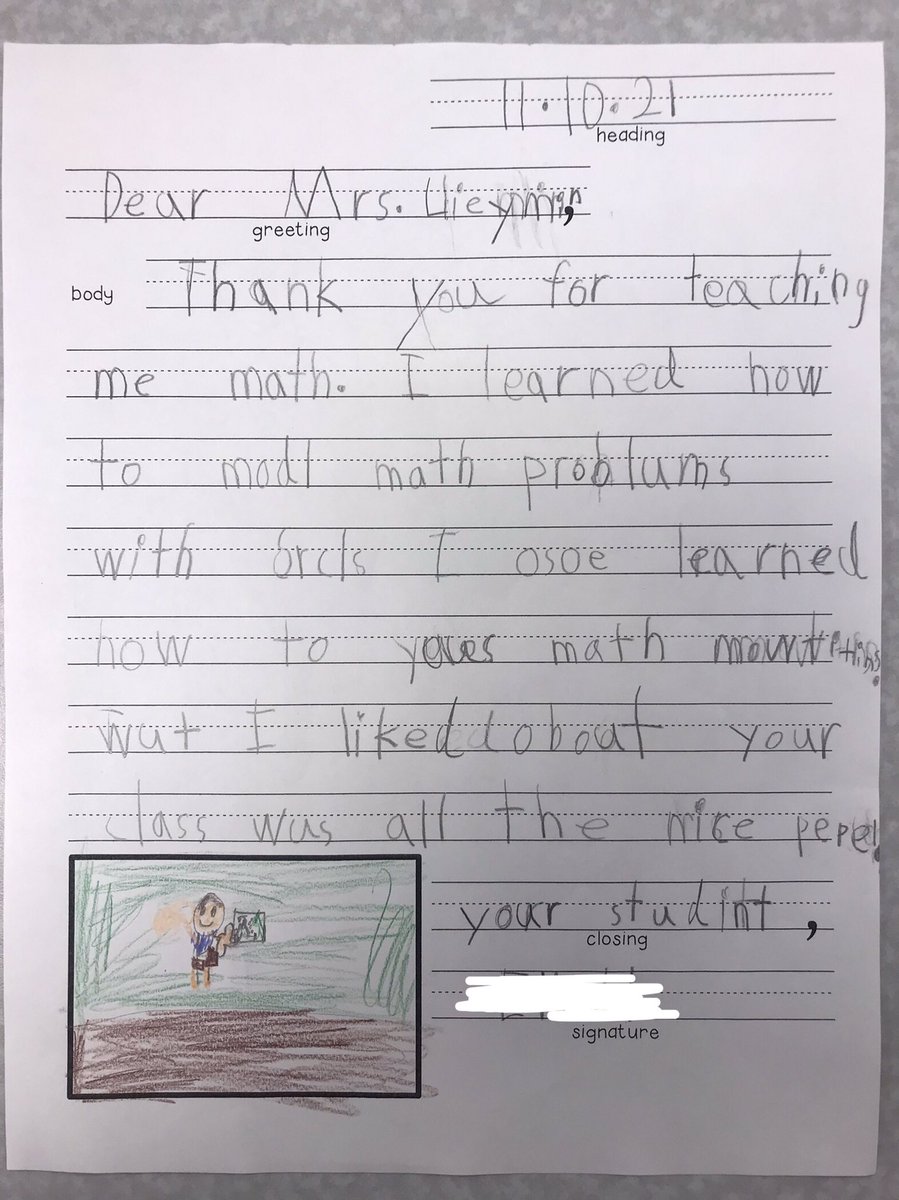 11.10.21
heading
Dear Mrs.
greeting
body
Thank you for teaching
me math. I learned how
to modl math problums
with brcls I osoe learned
how to math
Wut I liked oboat your
class wus all the nice pepel.
your studint,
closing
signature